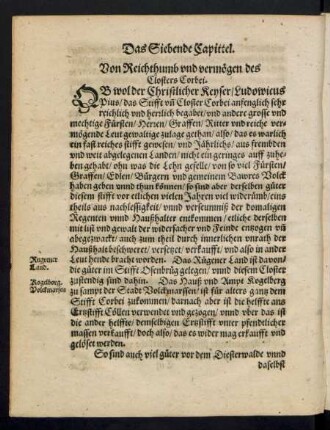 Das Siebende Capittel.
Von Reichthumb vnd vermögen des
Closters Corbei.
OB wol der Christlicher Keyser / Ludowicus
Pius / das Stifft vñ Closter Corbei anfenglich sehr
reichlich vnd herrlich begabet / vnd andere grosse vnd
mechtige Fürsten / Herren / Graffen / Ritter vnd reiche ver-
mögende Leut gewaltige zulage gethan / also / das es warlich
ein fast reiches stifft gewesen / vnd Jährlichs / aus frembden
vnd weit abgelegenen Landen / nicht ein geringes auff zuhe-
ben gehabt / ohn was die Lehr geselle / so von viel Fürsten /
Graffen / Edlen / Bürgern vnd gemeinem Bawres Volck
haben geben vnnd thun können / so sind aber derselben güter
diesem stifft vor etlichen vielen Jahren viel widerumb / eins
theils aus nachlessigkeit / vnnd verseumniß der domaligen
Regenten vnnd Haußhalter entkommen / etliche derselben
mit list vnd gewalt der widersacher vnd Feinde entzogen vñ
abgezwackt / auch zum theil durch innerlichen vnrath der
Haußhaltũ beschweret / versetzet / verkaufft / vnd also in ander
Leut hende bracht worden. Das Rügener Land ist davon /
die güter im Stifft Osenbrüg gelegen / vnnd diesem Closter
zustendig sind dahin. Das Hauß vnd Ampt Kogelberg
zu sampt der Stadt Volckmarssen / ist für alters gang dem
Stifft Corbei zukommen / darnach aber ist die helffte ans
Ertzstifft Cöllen verwendet vnd gezogen / vnnd vber das ist
die ander helffte / demselbigen Ertzstifft vnter pfendlicher
massen verkaufft / doch also / das es wider mag erkaufft vnd
gelöset werden.
So sind auch viel güter vor dem Diesterwalde vnnd
daselbst
Rugener
Land.
Kogelberg.
Volckmarsen